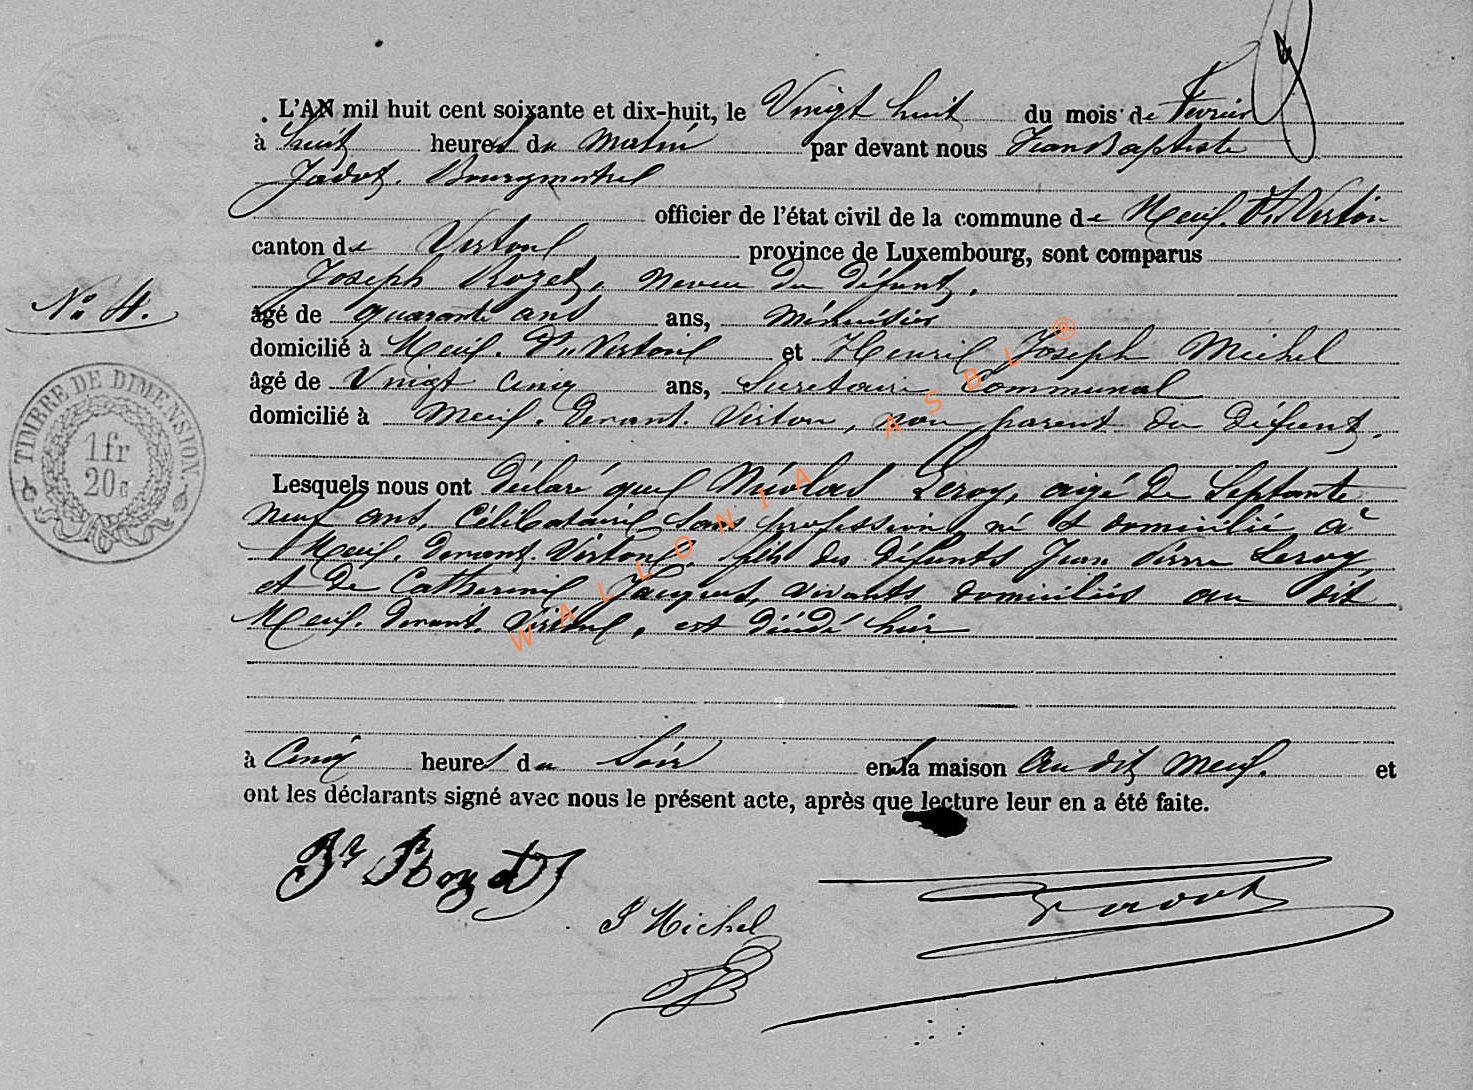 L'AN mil huit cent soixante et dix-huit, le Vingt huit du mois de Fevrier
à huit heures du Matin par devant nous Jean Baptiste
Jadot, Bourgmestre
officier de l'état civil de la commune de Meix. Dt Virton
canton de Virton province de Luxembourg, sont comparus
Joseph Rozet, neveu du défunt,
No 4.
âgé de quarante ans ans, Ménuisier
domicilié à Meix. Dt Virton et Henri Joseph Michel
âgé de Vingt Cinq ans, Secretaire Communal
domicilié à Meix. Devant. Virton, non parent du défunt.
TIMBRE DE DIMENSION.
1 fr
20 c
Lesquels nous ont déclaré que Nicolas Leroy, agé de Septante
neuf ans, Célibataire sans profession, né & domicilié à
Meix. Devant. Virton, fils des défunts Jean Pierre Leroy
et de Catherine Jacques, vivants domiciliés au dit
Meix. Devant. Virton, est décédé hier
à Cinq heures du Soir en sa maison au dit Meix. et
ont les déclarants signé avec nous le présent acte, après que lecture leur en a été faite.
Jh Rozet
J Michel
Jadot
WALLONIA ASBL ®